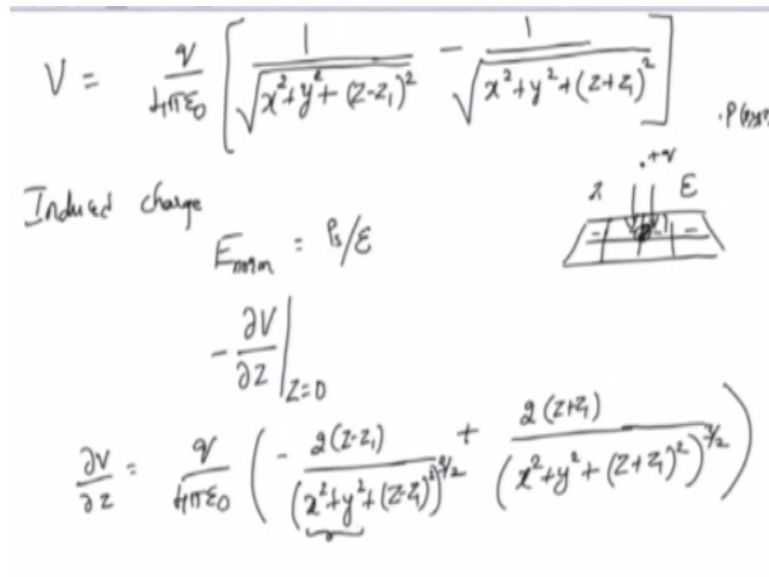 V = q/4πε₀ [ 1/√(x²+y²+(z-z₁)²) - 1/√(x²+y²+(z+z₁)²) ]
.P(xyz
.+q
Induced charge
z ε
E_norm = ρs/ε
- -
- ∂V/∂z |z=0
∂V/∂z = q/4πε₀ ( - 2(z-z₁)/(x²+y²+(z-z₁)²)^3/2 + 2(z+z₁)/(x²+y²+(z+z₁)²)^3/2 )